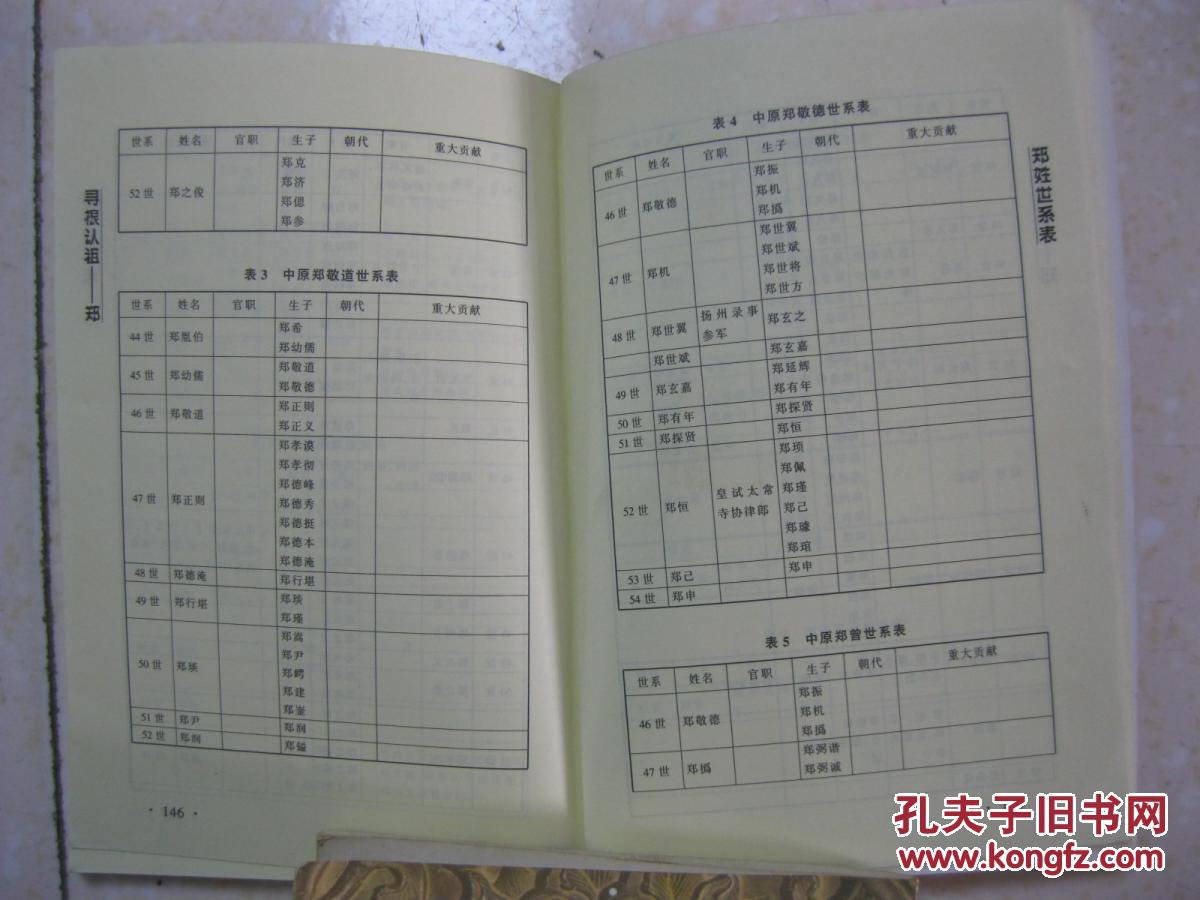 寻根认祖——郑
世系 姓名 官职 生子 朝代 重大贡献
52世 郑之俊 郑克
郑济
郑偲
郑参
表3 中原郑敬道世系表
世系 姓名 官职 生子 朝代 重大贡献
44世 郑胤伯 郑希
郑幼儒
45世 郑幼儒 郑敬道
郑敬德
46世 郑敬道 郑正则
郑正义
47世 郑正则 郑孝谟
郑孝彻
郑德峰
郑德秀
郑德挺
郑德本
郑德淹
48世 郑德淹 郑行堪
49世 郑行堪 郑琰
郑瑾
50世 郑琰 郑嵩
郑尹
郑崿
郑建
郑崟
51世 郑尹 郑润
52世 郑润 郑镒
· 146 ·
郑姓世系表
表4 中原郑敬德世系表
世系 姓名 官职 生子 朝代 重大贡献
46世 郑敬德 郑振
郑机
郑撝
47世 郑机 郑世翼
郑世斌
郑世将
郑世方
48世 郑世翼 扬州录事参军 郑玄之
郑世斌 郑玄嘉
49世 郑玄嘉 郑延辉
郑有年
50世 郑有年 郑探贤
51世 郑探贤 郑恒
52世 郑恒 皇试太常寺协律郎 郑顼
郑佩
郑瑾
郑己
郑璩
郑琯
53世 郑己 郑申
54世 郑申
表5 中原郑曾世系表
世系 姓名 官职 生子 朝代 重大贡献
46世 郑敬德 郑振
郑机
郑撝
47世 郑撝 郑弼谐
郑弼诚
孔夫子旧书网
www.kongfz.com